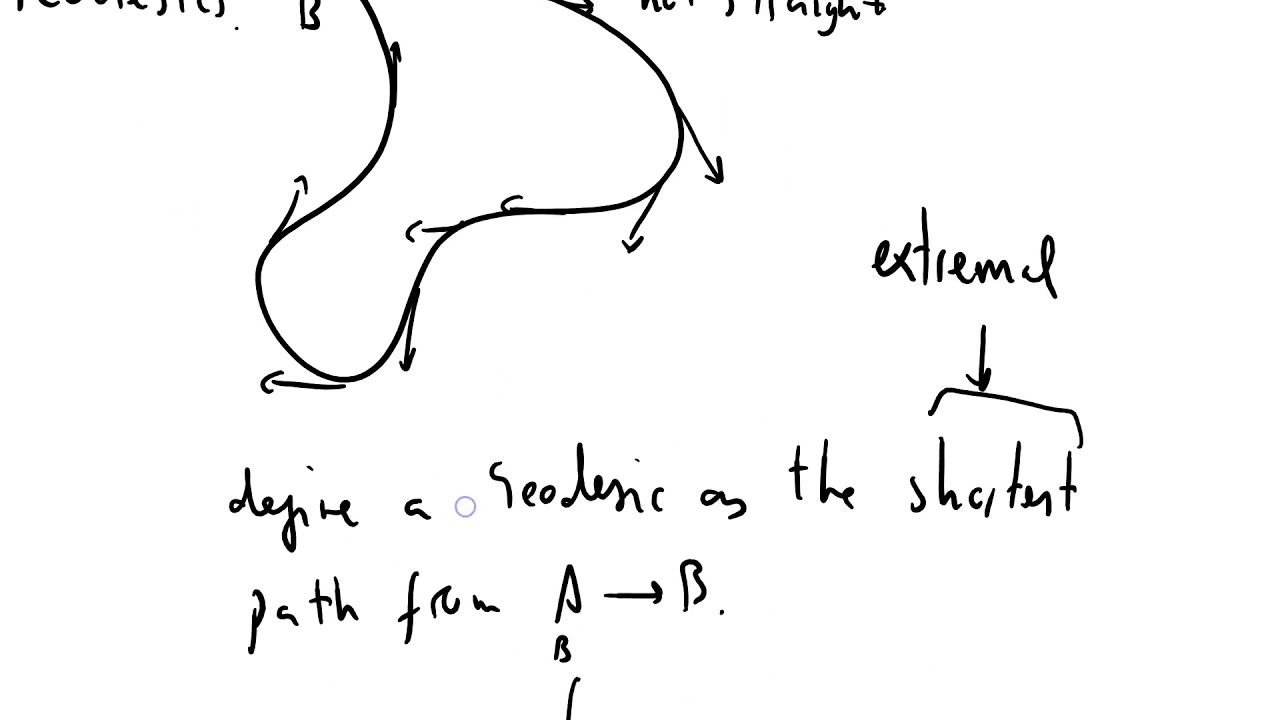 Geodesics. B not straight
extremal
define a Geodesic as the shortest
path from A → B.
B